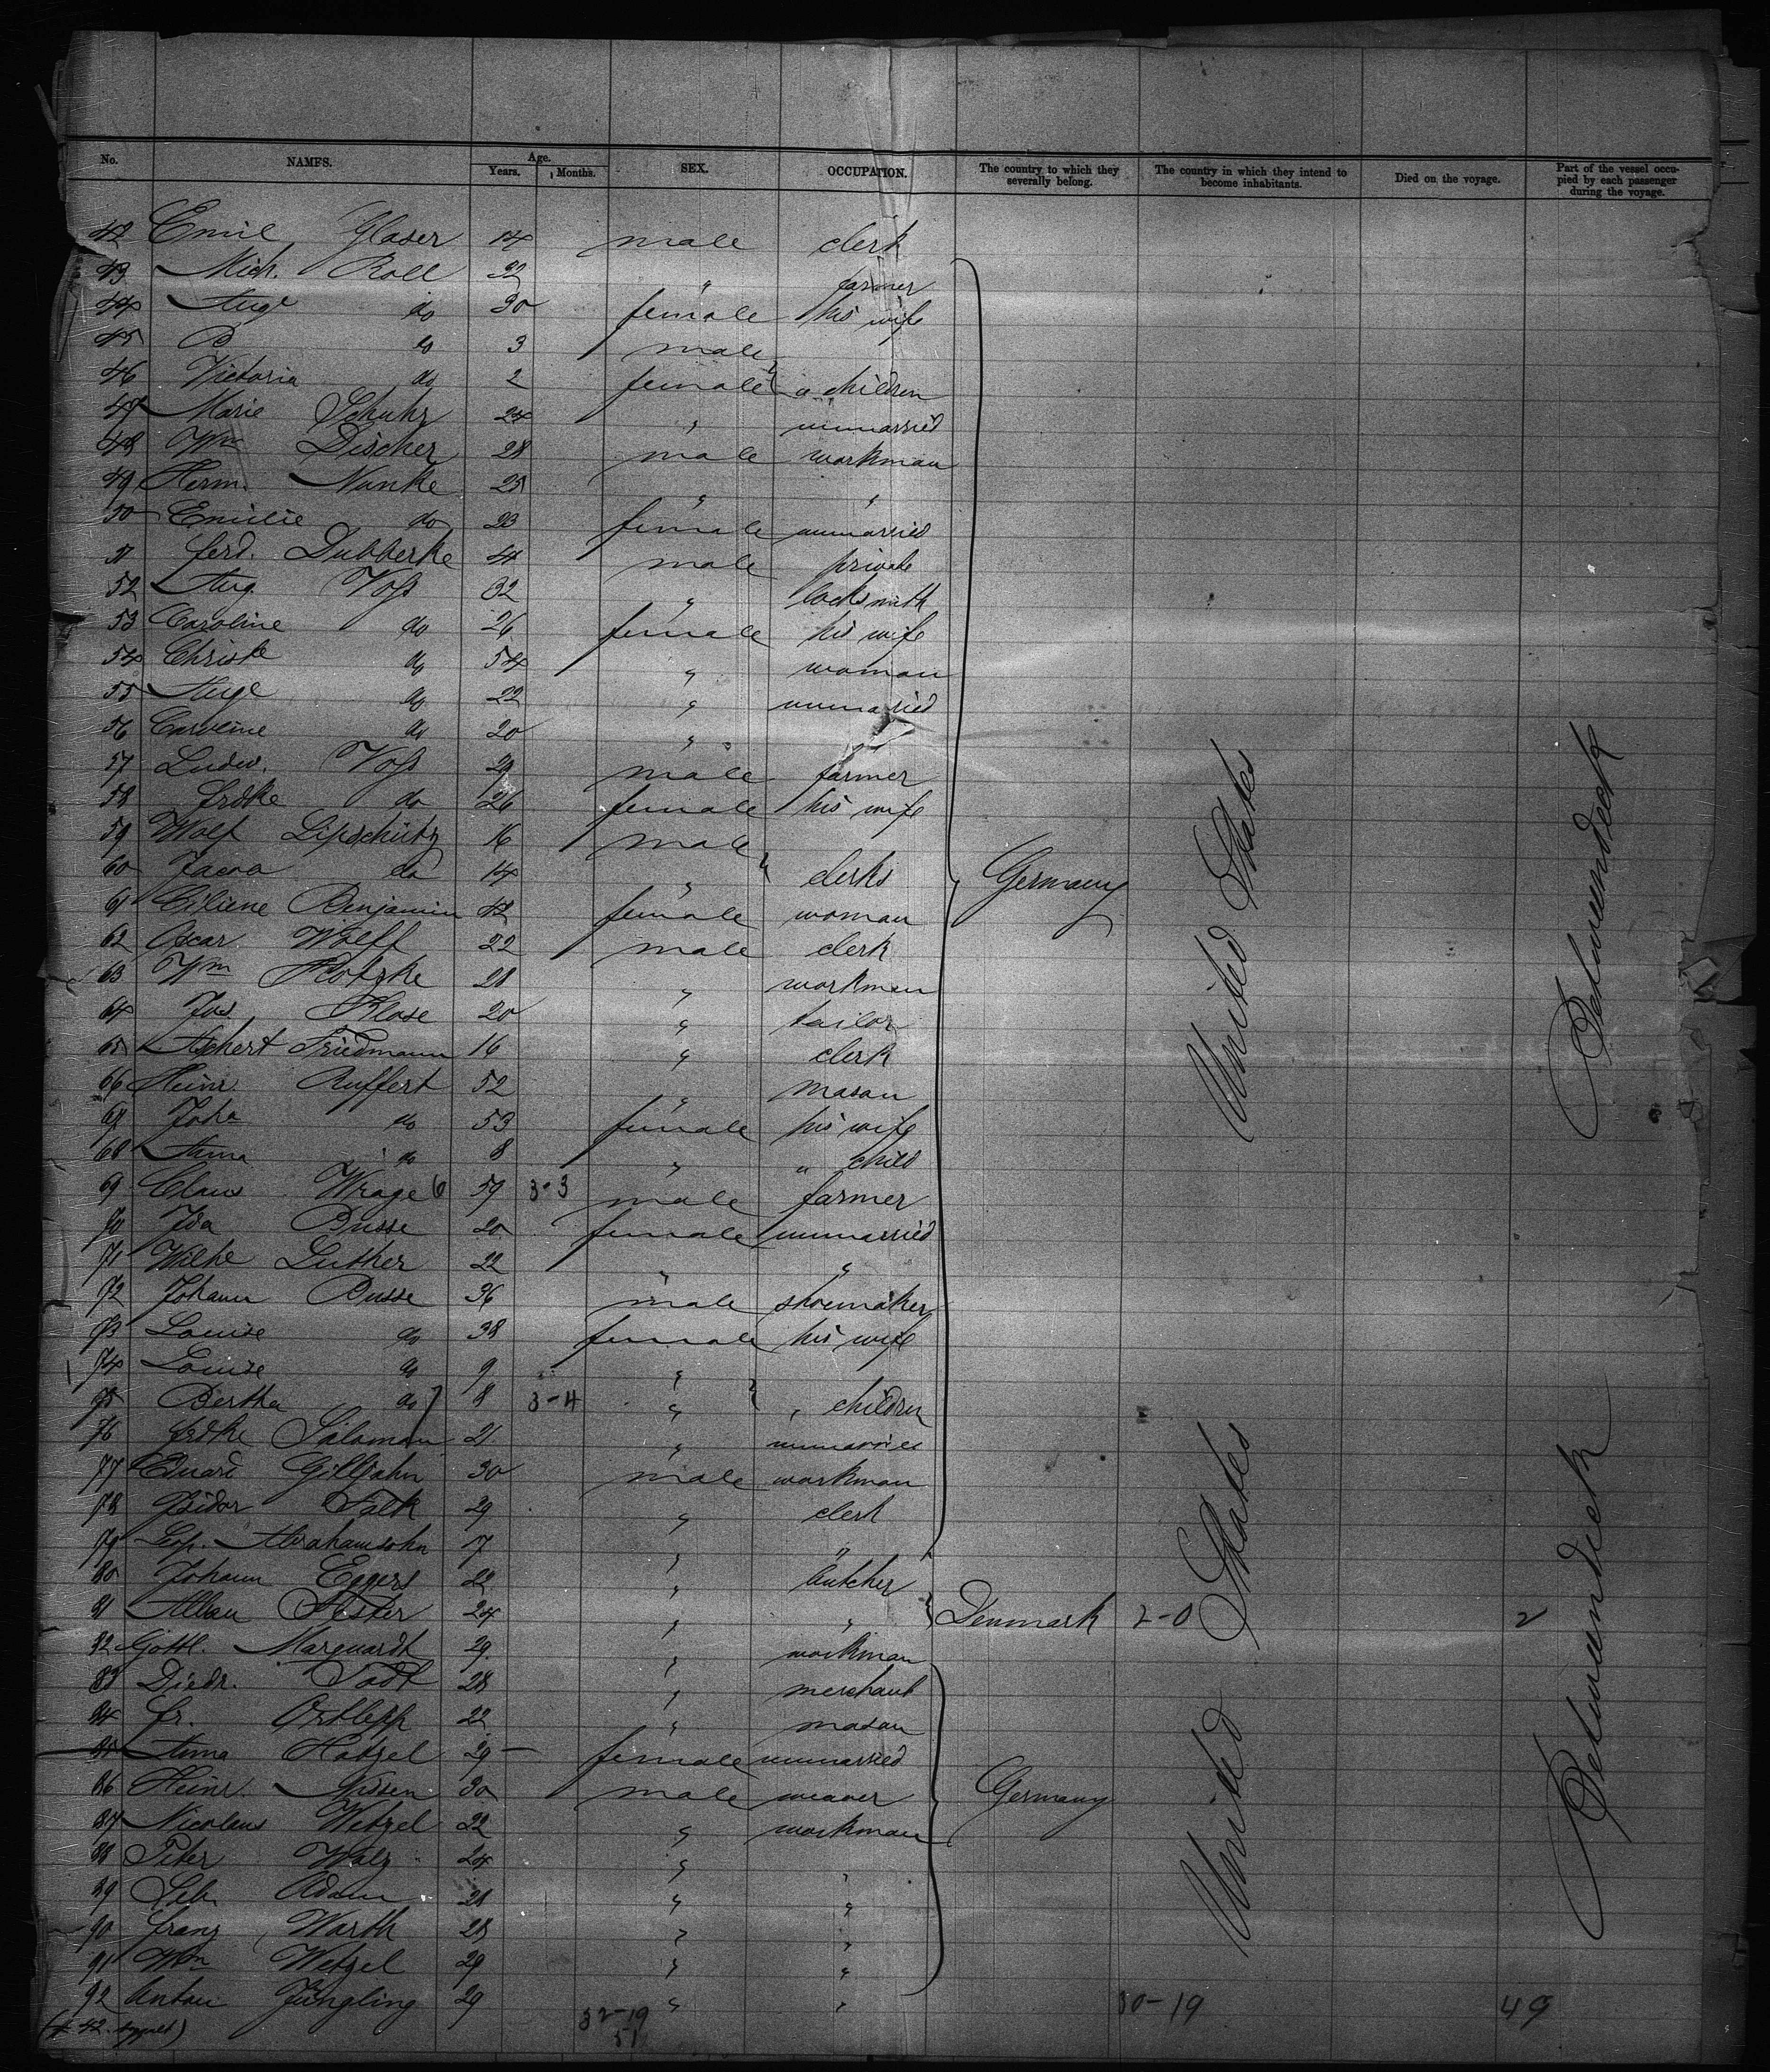 No. NAMES. Age. Years. Months. SEX. OCCUPATION. The country to which they severally belong. The country in which they intend to become inhabitants. Died on the voyage. Part of the vessel occupied by each passenger during the voyage.
42 Emil Glaser 14 male clerk
43 Mich. Roll 32 " farmer
44 Auge do 30 female his wife
45 B do 3 male
46 Victoria do 2 female " children
47 Marie Schuhz 24 " unmarried
48 Wm Discher 28 male workman
49 Herm. Nunke 25 " "
50 Emilie do 23 female unmarried
51 Ferd. Dubberke 4 male private
52 Aug. Voß 32 " locksmith
53 Caroline do 26 female his wife
54 Christe do 54 " woman
55 Auge do 22 " unmarried
56 Caroline do 20 " "
57 Ludw. Voß 29 male farmer
58 Frdke do 26 female his wife
59 Wolf Lipschütz 16 male
60 do 14 " clerks Germany United States Betweendeck
61 Benjamin 42 female woman
62 Oscar Wolff 22 male clerk
63 Wm Kotzke 28 " workman
64 Jos. Klose 20 " tailor
65 Friedmann 16 " clerk
66 Heinr. Ruffert 52 " mason
67 Joha do 53 female his wife
68 Anna do 8 " " child
69 Claus Wrage 6 59 3-3 male farmer
70 Ida Busse 20 female unmarried
71 Wilhe Luther 22 " "
72 Johann Busse 36 male shoemaker
73 Louise do 38 female his wife
74 Louise do 9 "
75 Bertha do 8 3-4 " " children
76 Frdke Salomon 21 " unmarried
77 Eduard Gilljahn 30 male workman
78 Isidor Falk 29 " clerk
79 Leop. Abrahamsohn 17 " "
80 Johann Eggers 22 " butcher
81 Alban 24 " " Denmark 2-0 United States 2 Betweendeck
82 Gottl. Marquardt 29 " workman
83 Diedr. Todt 28 " merchant
84 Fr. Ortlepp 22 " mason
85 Anna Hatzel 29 female unmarried
86 Heinr. Nissen 30 male weaver Germany
87 Nicolaus Wetzel 22 " workman
88 Peter Walz 24 " "
89 Seb. Adam 28 " "
90 Franz Warth 28 " "
91 Wm Wetzel 29 " "
92 Anton Jüngling 29 " "
32-19 30-19 49
51